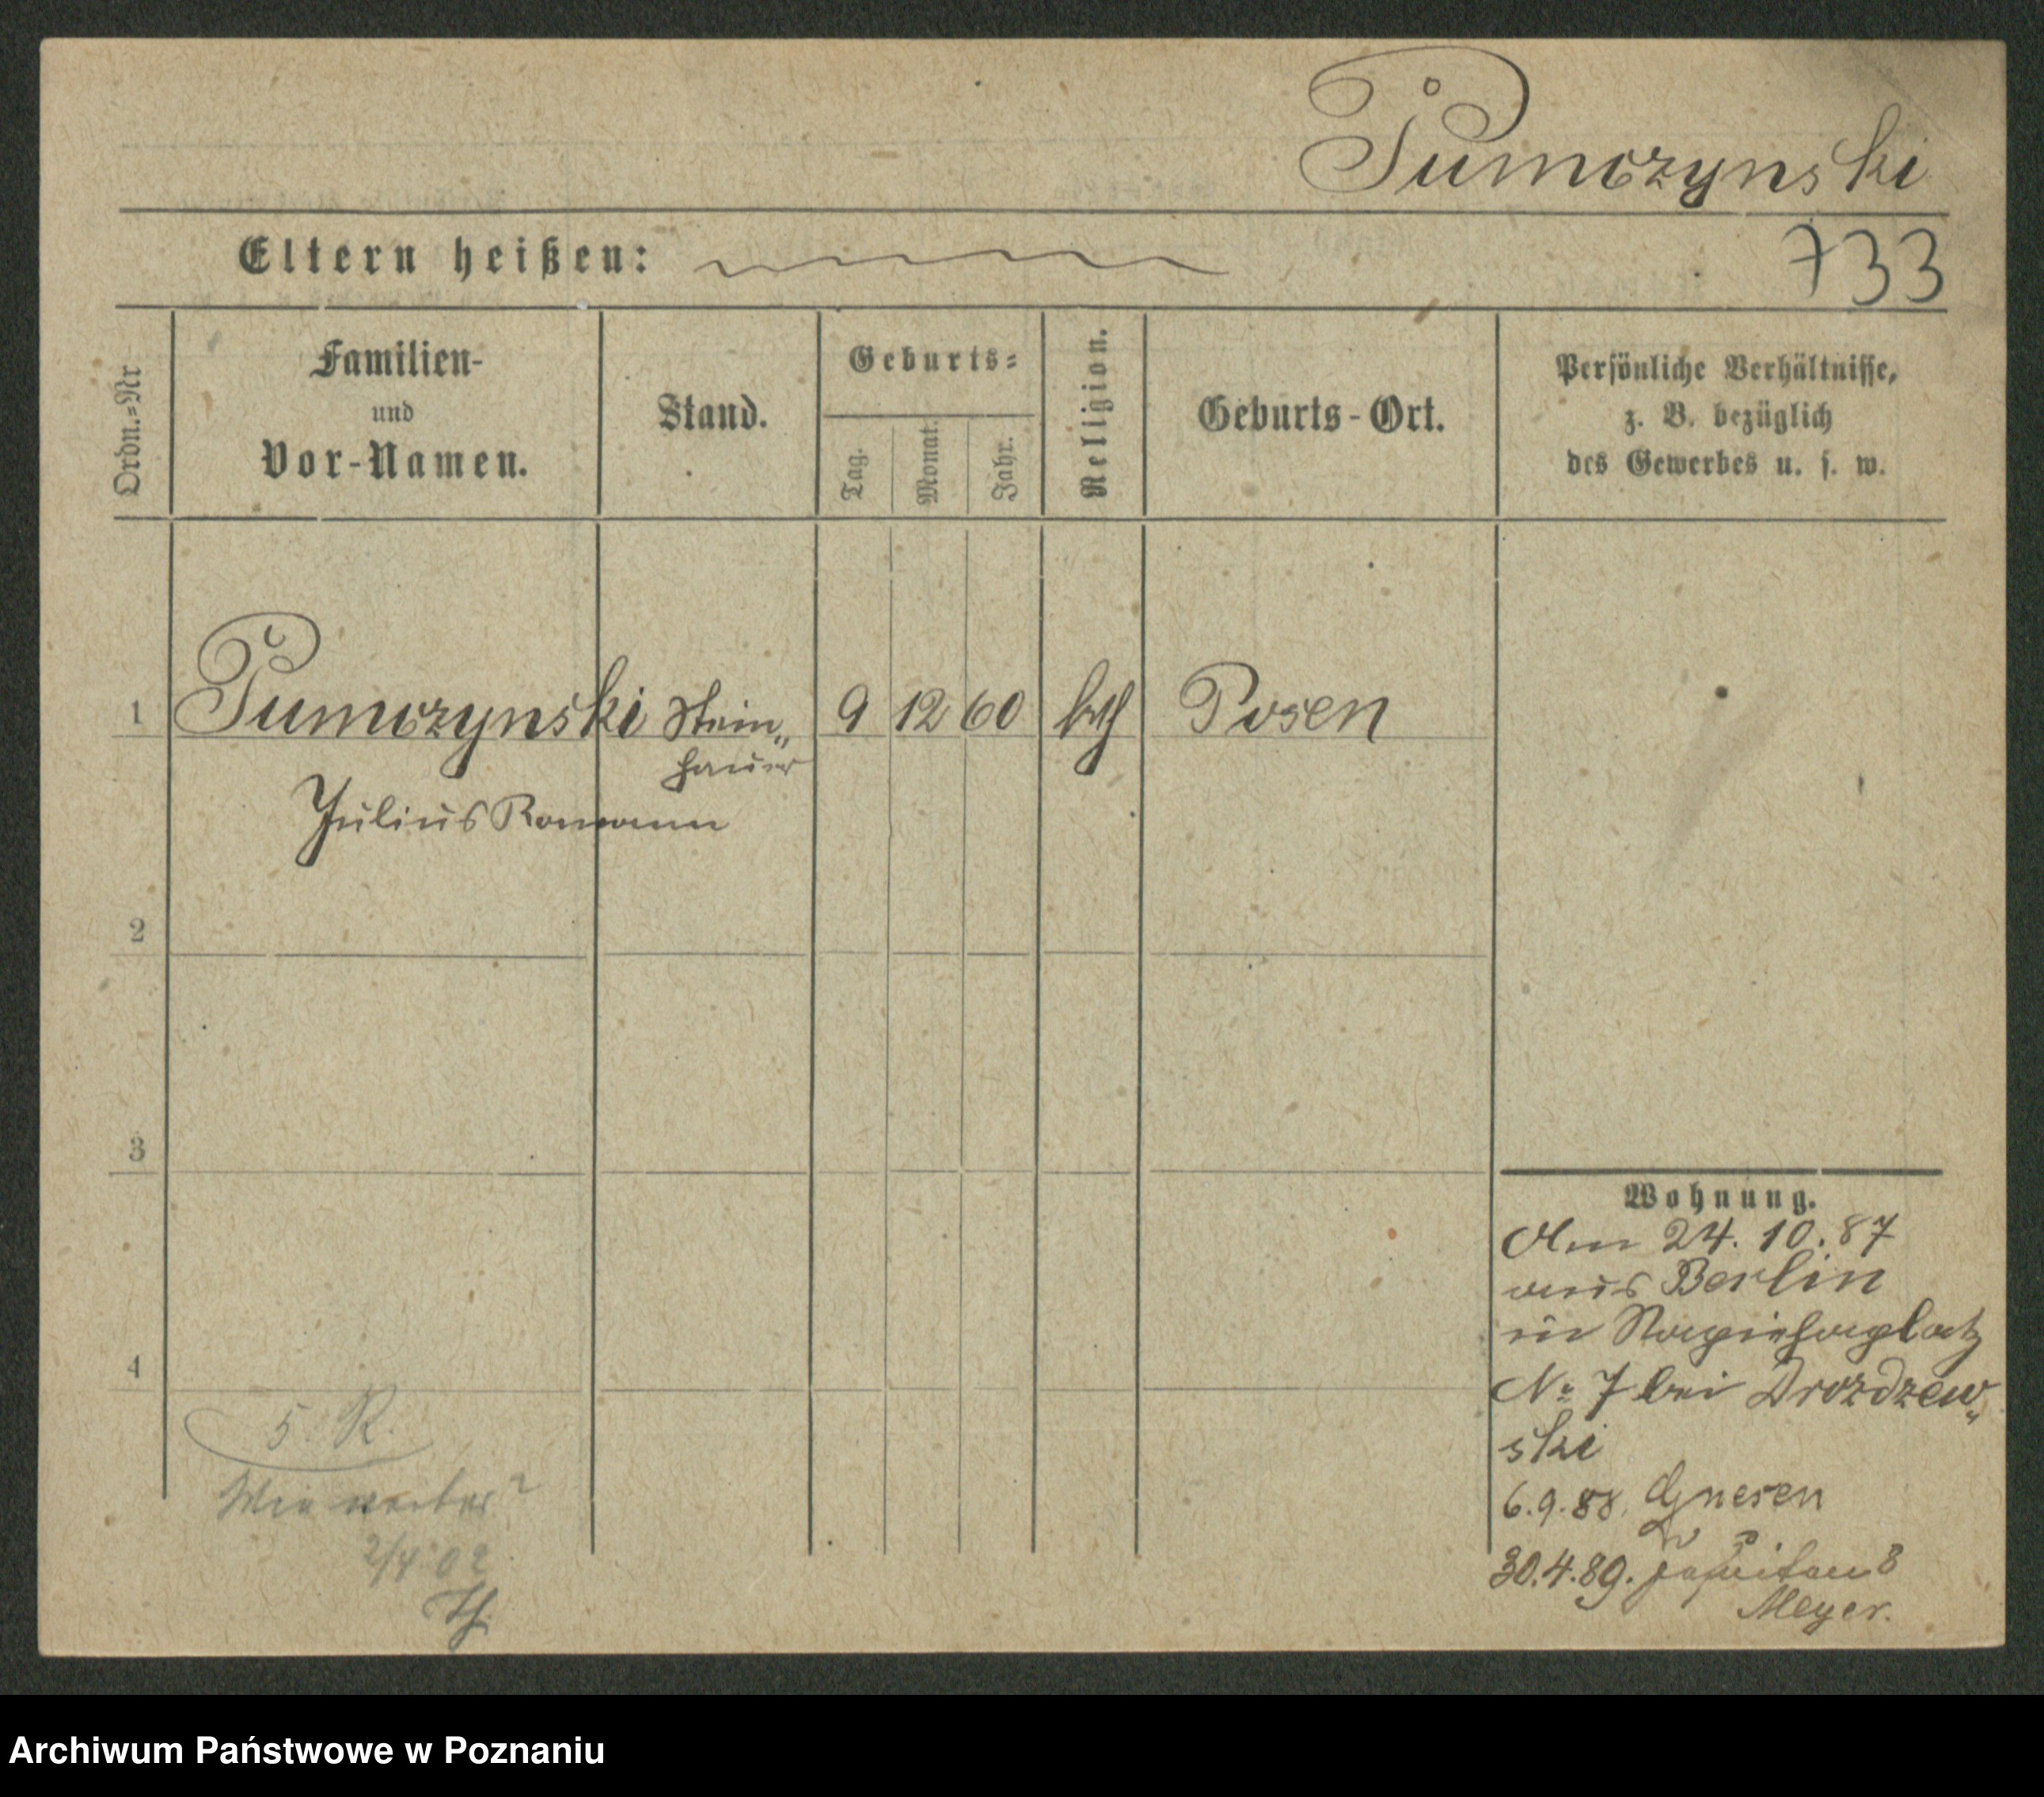 Pumczynski
Eltern heißen:
733
Ordn.=Nr
Familien-
und
Vor-Namen.
Stand.
Geburts=
Tag.
Monat.
Jahr.
Religion.
Geburts-Ort.
Persönliche Verhältnisse,
z. B. bezüglich
des Gewerbes u. s. w.
1 Pumczynski Stein„ 9 12 60 kth Posen
hauer
Julius Romann
2
3
4
Wohnung.
Am 24. 10. 87
aus Berlin
in Sapiehaplatz
No 7 bei Drozdzew„
ski
6. 9. 88. Gnesen
30. 4. 89. 8
Meyer.
5. R.
Wie weiter?
2/4 02
Archiwum Państwowe w Poznaniu